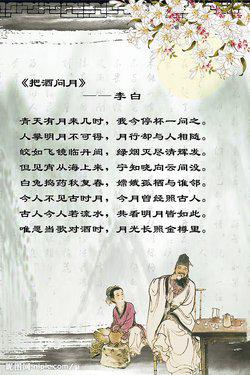 《把酒问月》
——李白
青天有月来几时，我今停杯一问之。
人攀明月不可得，月行却与人相随。
皎如飞镜临丹阙，绿烟灭尽清辉发。
但见宵从海上来，宁知晓向云间没。
白兔捣药秋复春，嫦娥孤栖与谁邻。
今人不见古时月，今月曾经照古人。
古人今人若流水，共看明月皆如此。
唯愿当歌对酒时，月光长照金樽里。